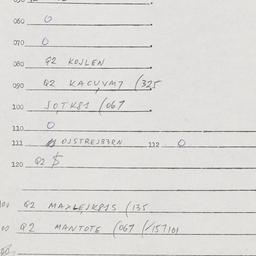 060 0
070 0
080 Q2 KOJLEN
090 Q2 KACUVM7 (325
100 JOTK81 (067
110 0
111 OJSTREJB3RN 112 0
120 Q2 $
Q2 MAXLEJK81S (135
00 Q2 MANTOTE (067 (/157101